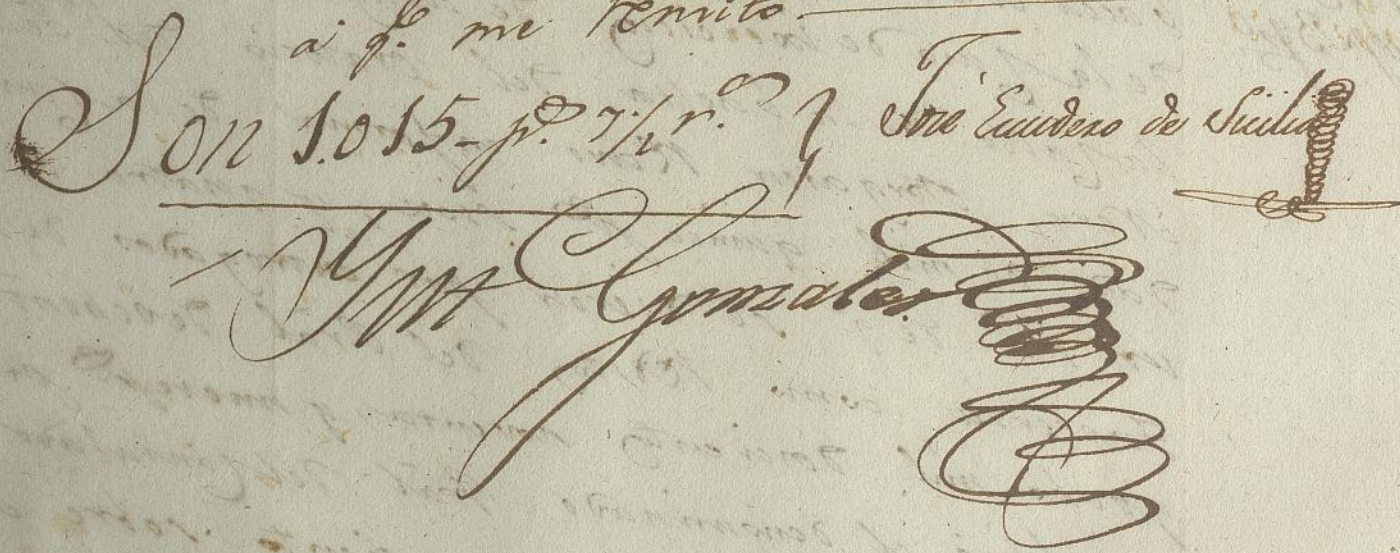 a qe. me remito
Son 1.015- ps. 7 1/2 rs.
José Escudero de Sicilia
Gonzales